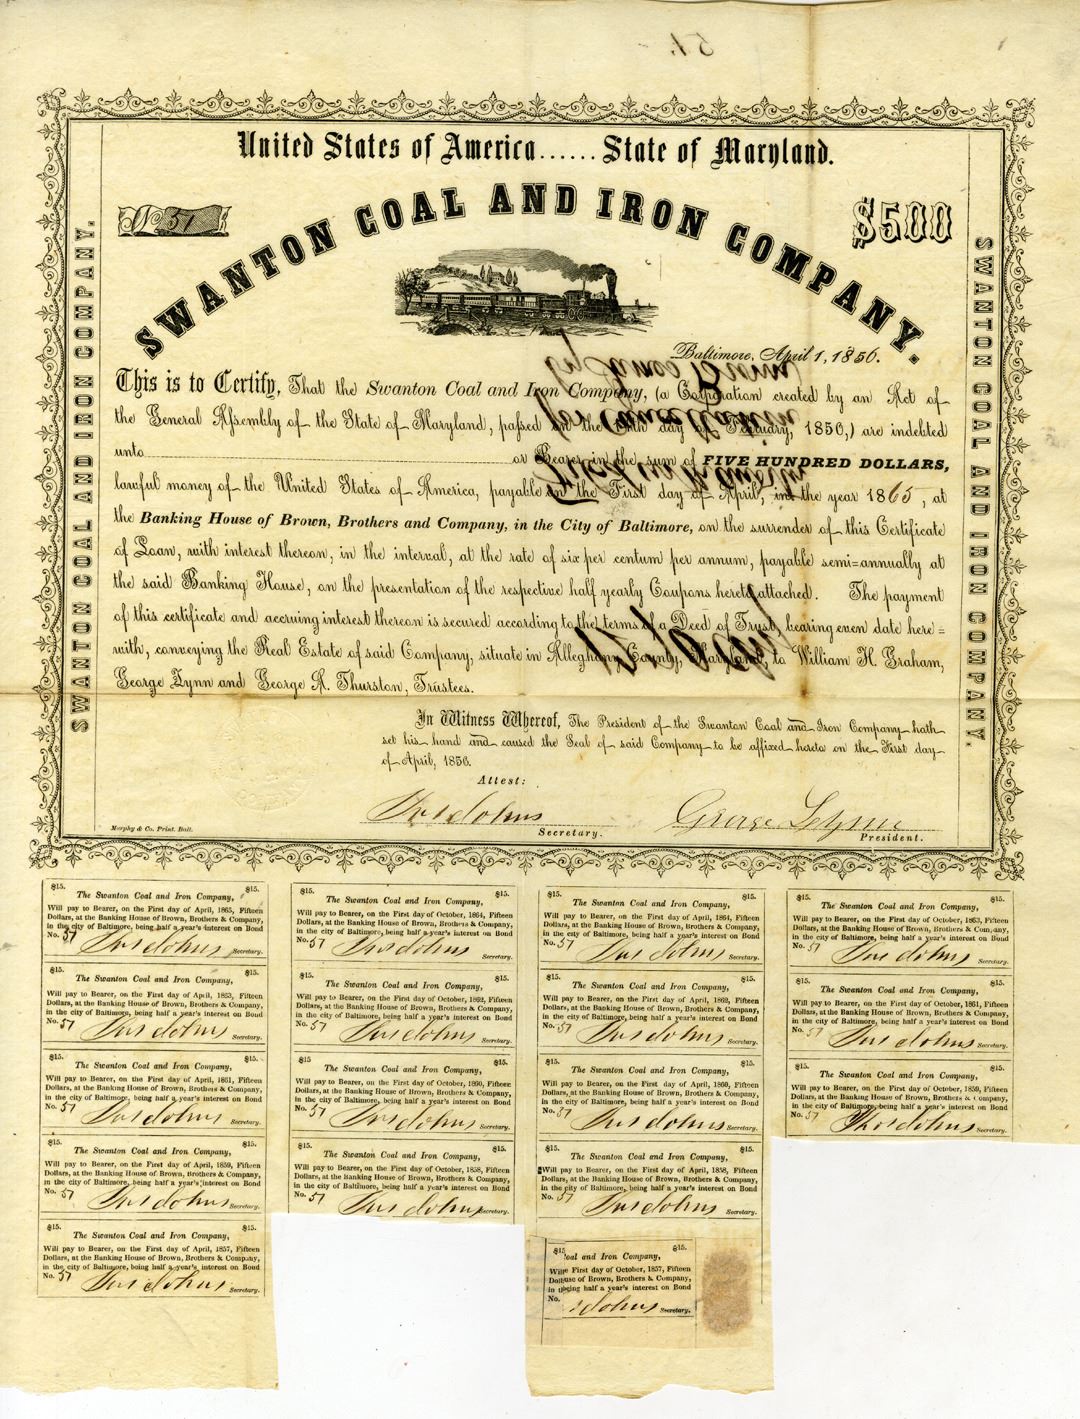 51.
United States of America......State of Maryland.
No 51
$500
SWANTON COAL AND IRON COMPANY.
Baltimore, April 1, 1856.
This is to Certify, That the Swanton Coal and Iron Company, (a Corporation created by an Act of
the General Assembly of the State of Maryland, passed on the day of February, 1856,) are indebted
unto or Bearer in the sum of FIVE HUNDRED DOLLARS,
lawful money of the United States of America, payable on the First day of April, in the year 1865, at
the Banking House of Brown, Brothers and Company, in the City of Baltimore, on the surrender of this Certificate
of Loan, with interest thereon, in the interval, at the rate of six per centum per annum, payable semi=annually at
the said Banking House, on the presentation of the respective half yearly Coupons hereto attached. The payment
of this certificate and accruing interest thereon is secured according to the terms of a Deed of Trust, bearing even date here=
with, conveying the Real Estate of said Company, situate in Alleghany County, Maryland, to William H. Graham,
George Lynn and George A. Thurston, Trustees.
In Witness Whereof, The President of the Swanton Coal and Iron Company hath
set his hand and caused the Seal of said Company to be affixed hereto on the First day
of April, 1856.
Attest:
Secretary.
George Lynn
President.
Murphy & Co. Print. Balt.
SWANTON COAL AND IRON COMPANY.
SWANTON COAL AND IRON COMPANY.
$15. $15.
The Swanton Coal and Iron Company,
Will pay to Bearer, on the First day of April, 1865, Fifteen
Dollars, at the Banking House of Brown, Brothers & Company,
in the city of Baltimore, being half a year's interest on Bond
No. 51 Secretary.
$15. $15.
The Swanton Coal and Iron Company,
Will pay to Bearer, on the First day of October, 1864, Fifteen
Dollars, at the Banking House of Brown, Brothers & Company,
in the city of Baltimore, being half a year's interest on Bond
No. 51 Secretary.
$15. $15.
The Swanton Coal and Iron Company,
Will pay to Bearer, on the First day of April, 1864, Fifteen
Dollars, at the Banking House of Brown, Brothers & Company,
in the city of Baltimore, being half a year's interest on Bond
No. 51 Secretary.
$15. $15.
The Swanton Coal and Iron Company,
Will pay to Bearer, on the First day of October, 1863, Fifteen
Dollars, at the Banking House of Brown, Brothers & Company,
in the city of Baltimore, being half a year's interest on Bond
No. 51 Secretary.
$15. $15.
The Swanton Coal and Iron Company,
Will pay to Bearer, on the First day of April, 1863, Fifteen
Dollars, at the Banking House of Brown, Brothers & Company,
in the city of Baltimore, being half a year's interest on Bond
No. 51 Secretary.
$15. $15.
The Swanton Coal and Iron Company,
Will pay to Bearer, on the First day of October, 1862, Fifteen
Dollars, at the Banking House of Brown, Brothers & Company,
in the city of Baltimore, being half a year's interest on Bond
No. 51 Secretary.
$15. $15.
The Swanton Coal and Iron Company,
Will pay to Bearer, on the First day of April, 1862, Fifteen
Dollars, at the Banking House of Brown, Brothers & Company,
in the city of Baltimore, being half a year's interest on Bond
No. 51 Secretary.
$15. $15.
The Swanton Coal and Iron Company,
Will pay to Bearer, on the First day of October, 1861, Fifteen
Dollars, at the Banking House of Brown, Brothers & Company,
in the city of Baltimore, being half a year's interest on Bond
No. 51 Secretary.
$15. $15.
The Swanton Coal and Iron Company,
Will pay to Bearer, on the First day of April, 1861, Fifteen
Dollars, at the Banking House of Brown, Brothers & Company,
in the city of Baltimore, being half a year's interest on Bond
No. 51 Secretary.
$15. $15.
The Swanton Coal and Iron Company,
Will pay to Bearer, on the First day of October, 1860, Fifteen
Dollars, at the Banking House of Brown, Brothers & Company,
in the city of Baltimore, being half a year's interest on Bond
No. 51 Secretary.
$15. $15.
The Swanton Coal and Iron Company,
Will pay to Bearer, on the First day of April, 1860, Fifteen
Dollars, at the Banking House of Brown, Brothers & Company,
in the city of Baltimore, being half a year's interest on Bond
No. 51 Secretary.
$15. $15.
The Swanton Coal and Iron Company,
Will pay to Bearer, on the First day of October, 1859, Fifteen
Dollars, at the Banking House of Brown, Brothers & Company,
in the city of Baltimore, being half a year's interest on Bond
No. 51 Secretary.
$15. $15.
The Swanton Coal and Iron Company,
Will pay to Bearer, on the First day of April, 1859, Fifteen
Dollars, at the Banking House of Brown, Brothers & Company,
in the city of Baltimore, being half a year's interest on Bond
No. 51 Secretary.
$15. $15.
The Swanton Coal and Iron Company,
Will pay to Bearer, on the First day of October, 1858, Fifteen
Dollars, at the Banking House of Brown, Brothers & Company,
in the city of Baltimore, being half a year's interest on Bond
No. 51 Secretary.
$15. $15.
The Swanton Coal and Iron Company,
Will pay to Bearer, on the First day of April, 1858, Fifteen
Dollars, at the Banking House of Brown, Brothers & Company,
in the city of Baltimore, being half a year's interest on Bond
No. 51 Secretary.
$15. $15.
The Swanton Coal and Iron Company,
Will pay to Bearer, on the First day of April, 1857, Fifteen
Dollars, at the Banking House of Brown, Brothers & Company,
in the city of Baltimore, being half a year's interest on Bond
No. 51 Secretary.
$15 $15.
oal and Iron Company,
Will e First day of October, 1857, Fifteen
Doll use of Brown, Brothers & Company,
in t eing half a year's interest on Bond
No. Secretary.